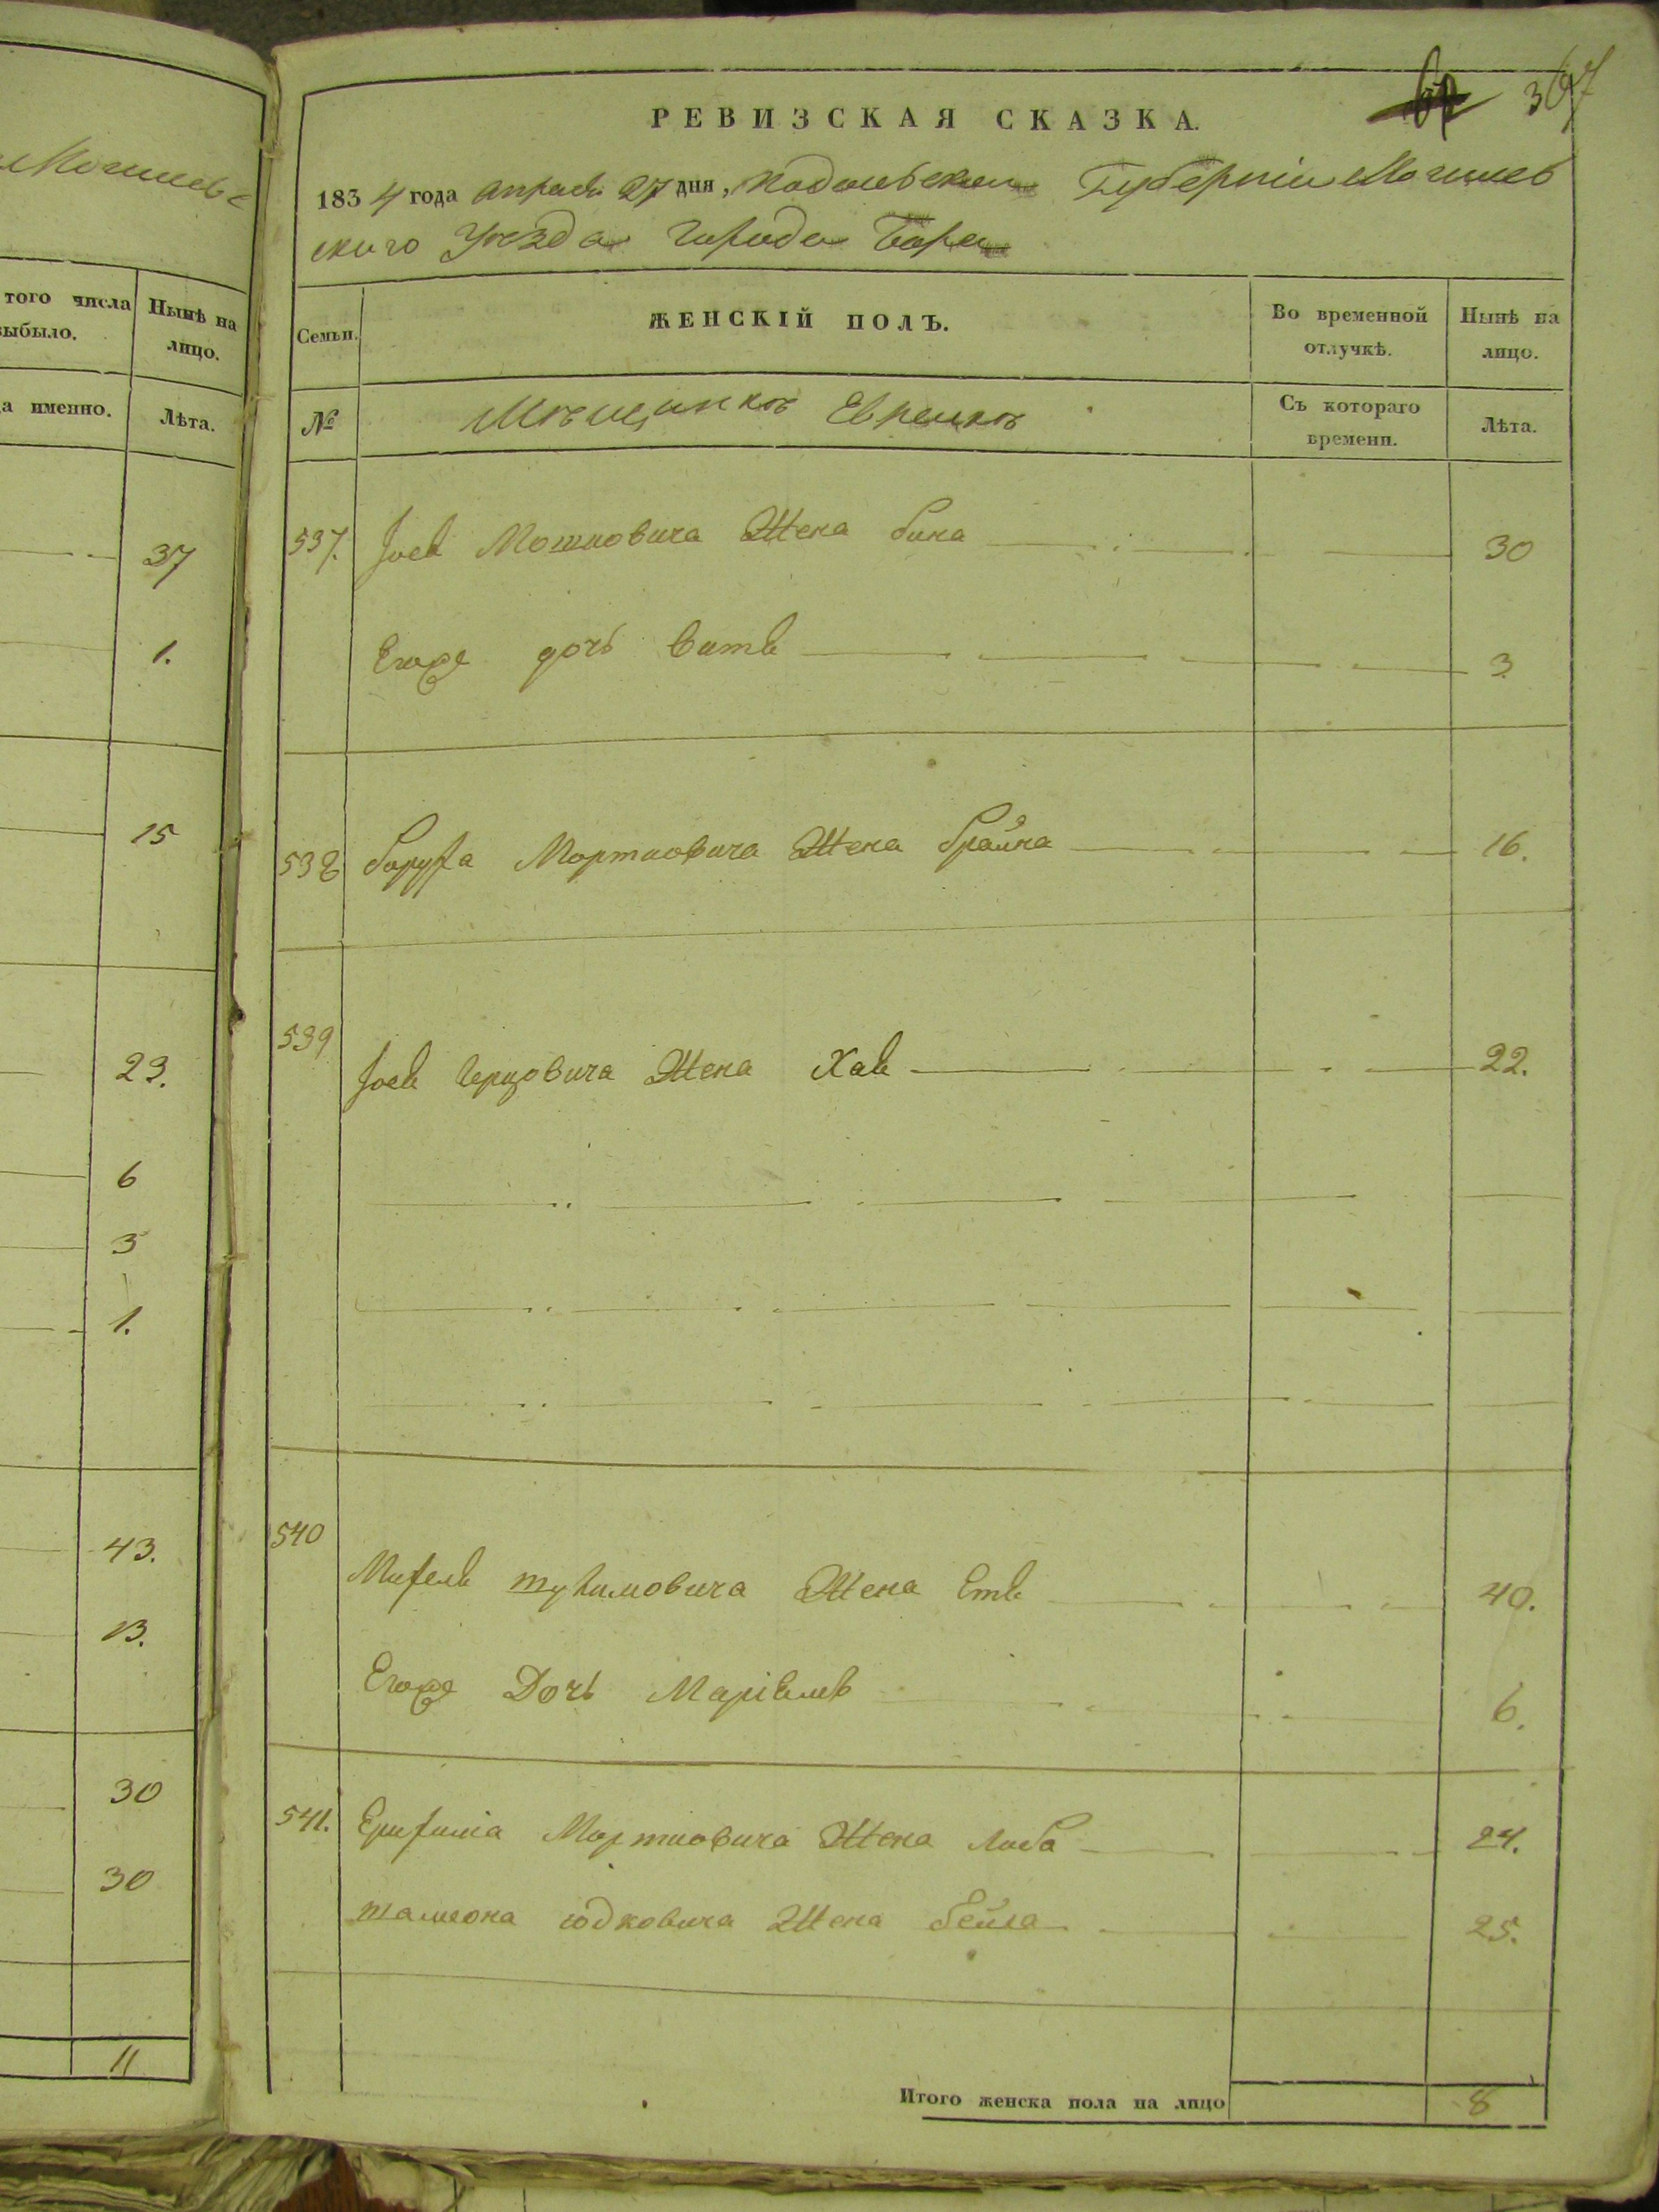 Могилевс
того числа
выбыло.
Нынѣ на
лицо.
да именно.
Лѣта.
37
1.
15
23.
6
3
1.
43.
13.
30
30
11
367
РЕВИЗСКАЯ СКАЗКА.
1834 года апреля 27 дня, Подольской Губерніи Могилев
ского Уезда Города Бара
Семьи.
ЖЕНСКІЙ ПОЛЪ.
Во временной
отлучкѣ.
Нынѣ на
лицо.
№
Мѣщанкъ Евреикъ
Съ котораго
времени.
Лѣта.
537. Іося Мошковича Жена бина 30
Егоже дочь 3
538 боруха Мортковича Жена брайна 16.
539
Іося Герцовича Жена Хая 22.
540
Михеля Жена Етя 40.
Егоже Дочь Маріемъ 6.
541. Мортковича Жена Либа 24.
юдковича Жена бейла 25.
Итого женска пола на лицо 8